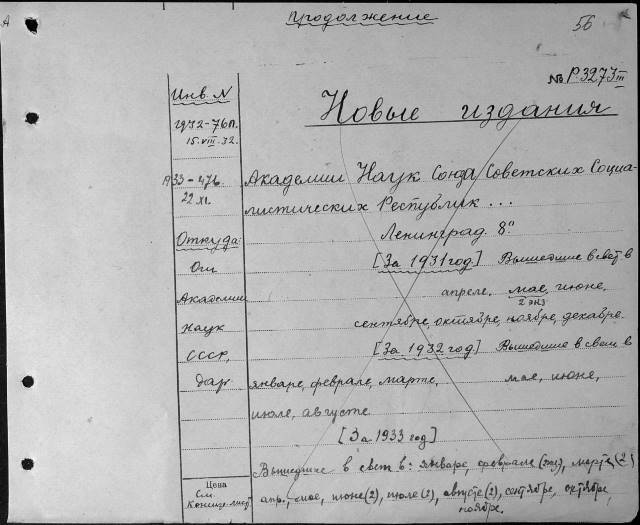 Продолжение
56
№ Р.3273 III
Инв. N
Новые издания
1932-76п.
15.VIII.32.
Академии Наук Союза Советских Социа-
22 XI.
листических Республик ...
Ленинград. 8º
Откуда:
[За 1931 год] Вышедшие в свет в
От
апреле, мае, июне,
2 экз
Академии
сентябре, октябре, ноябре, декабре.
Наук
[За 1932 год] Вышедшие в свет в
СССР,
дар
январе, феврале, марте, мае, июне,
июле, августе
[За 1933 год]
Вышедшие в свет в: январе, феврале, марте (2)
Цена
См.
апр., мае, июне (2), июле (2), августе (2), сентябре, октябре,
ноябре.